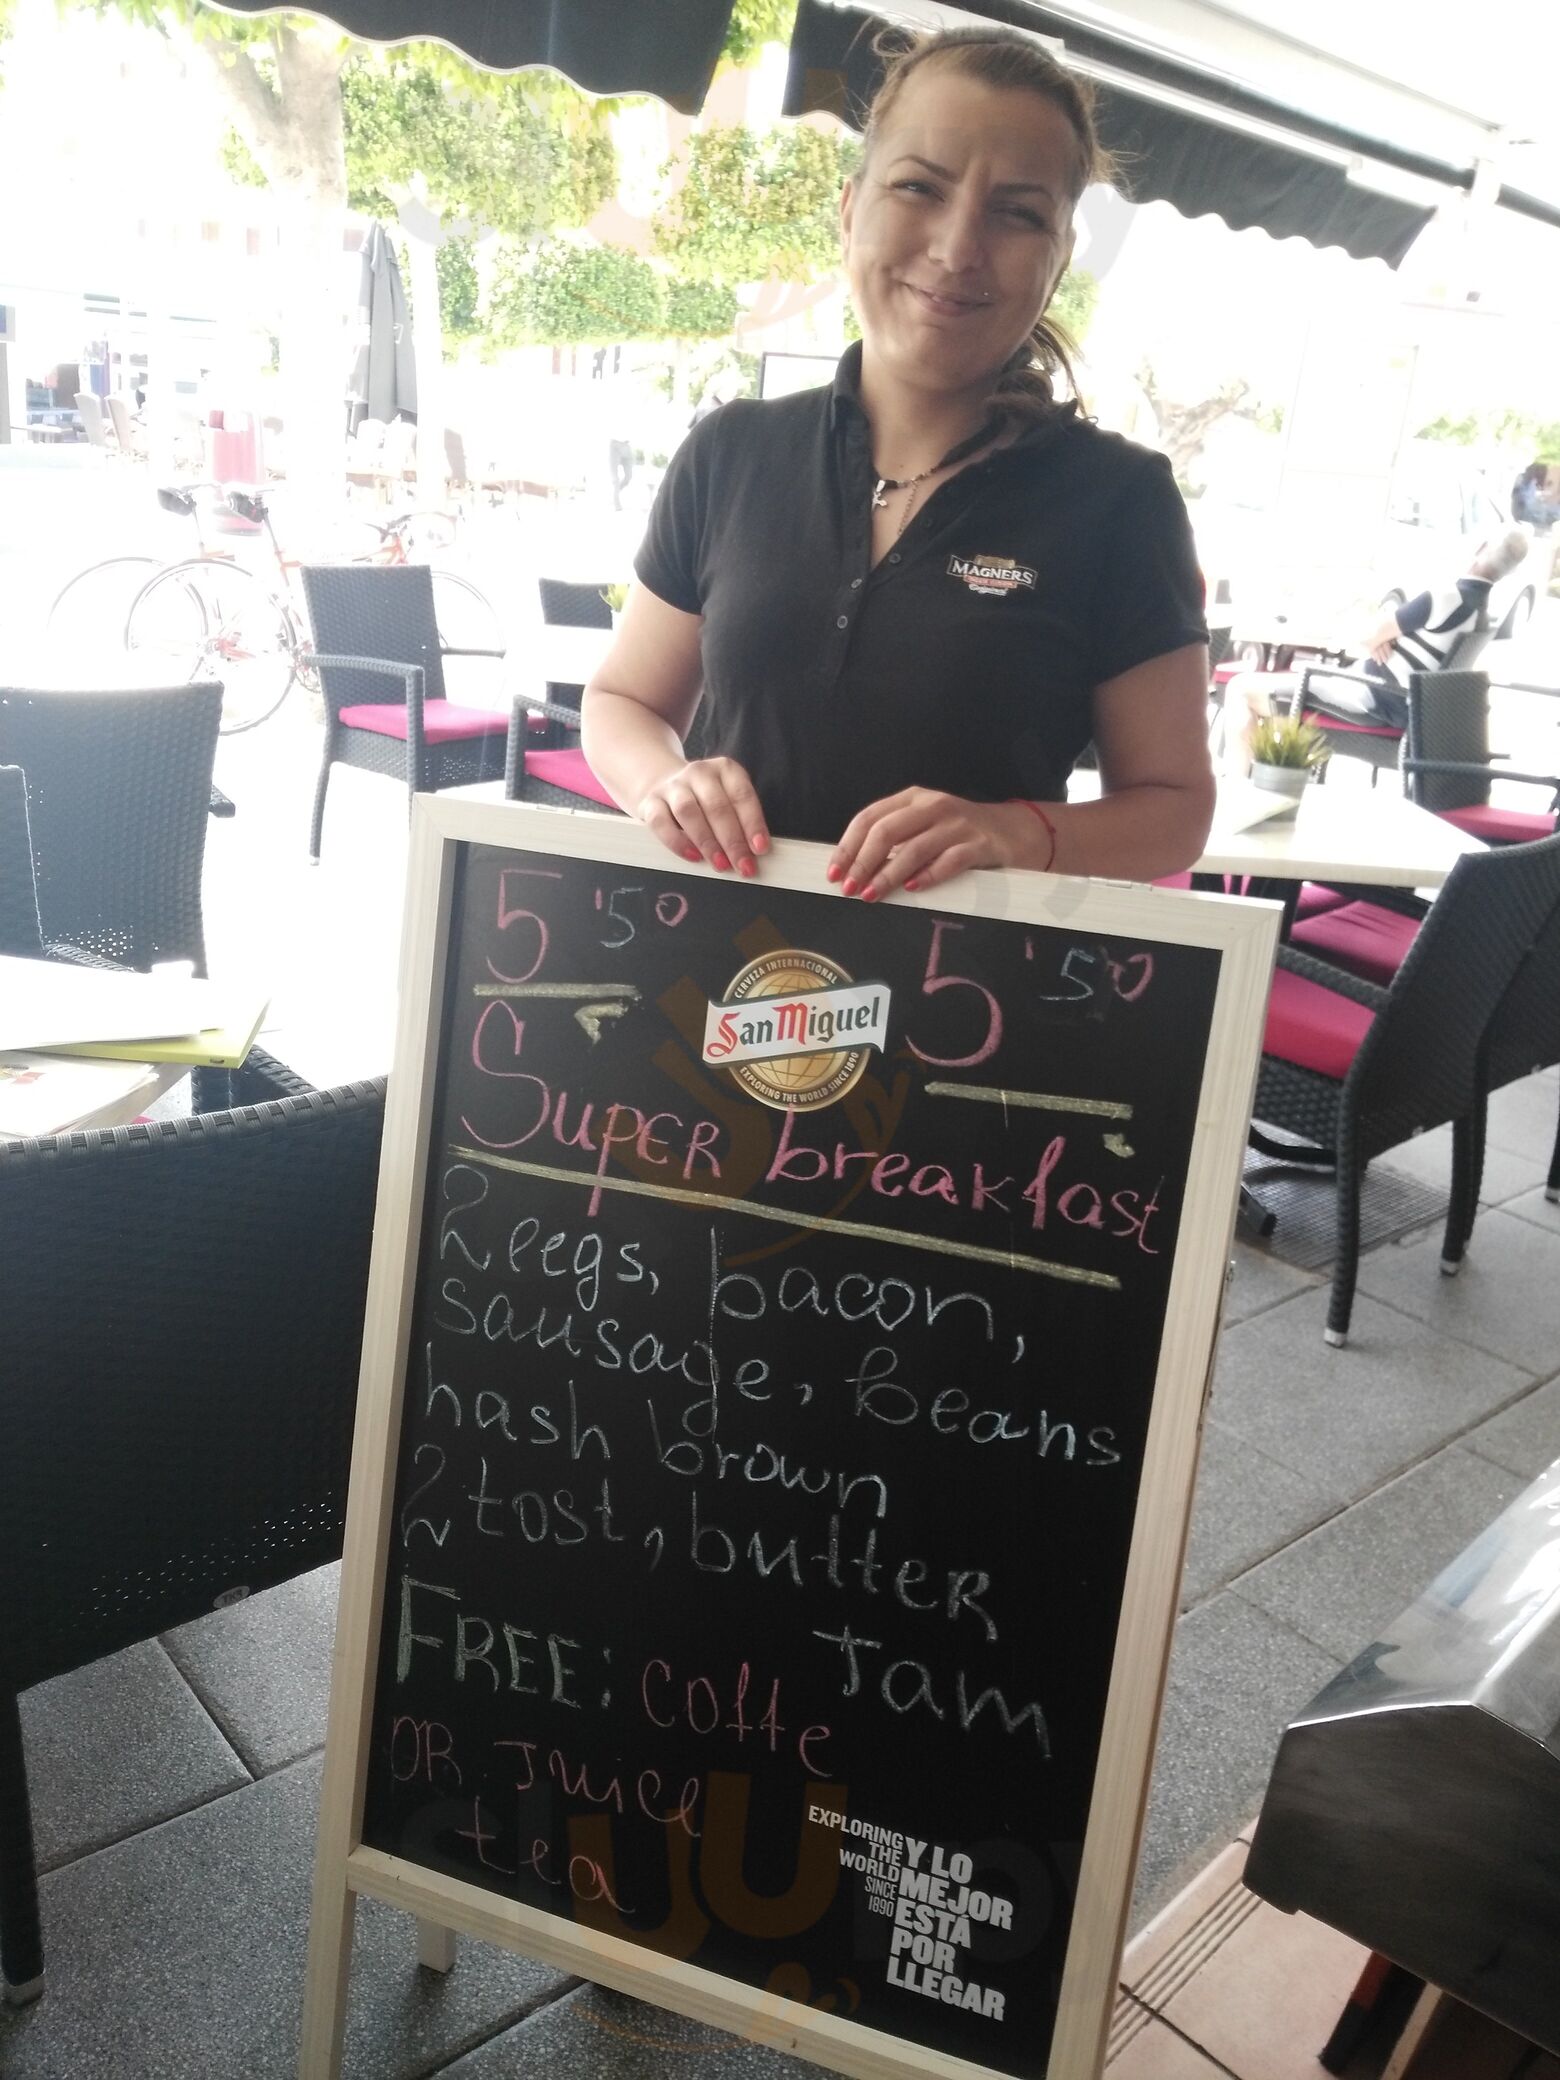 MAGNERS
5'50
5'50
CERVEZA INTERNACIONAL
San Miguel
EXPLORING THE WORLD SINCE 1890
SUPER breakfast
2 eegs, bacon,
sausage, beans
hash brown
2 tost, butter
Jam
FREE: coffe
OR Juice
tea
EXPLORING
THE
WORLD
SINCE
1890
Y LO
MEJOR
ESTÁ
POR
LLEGAR